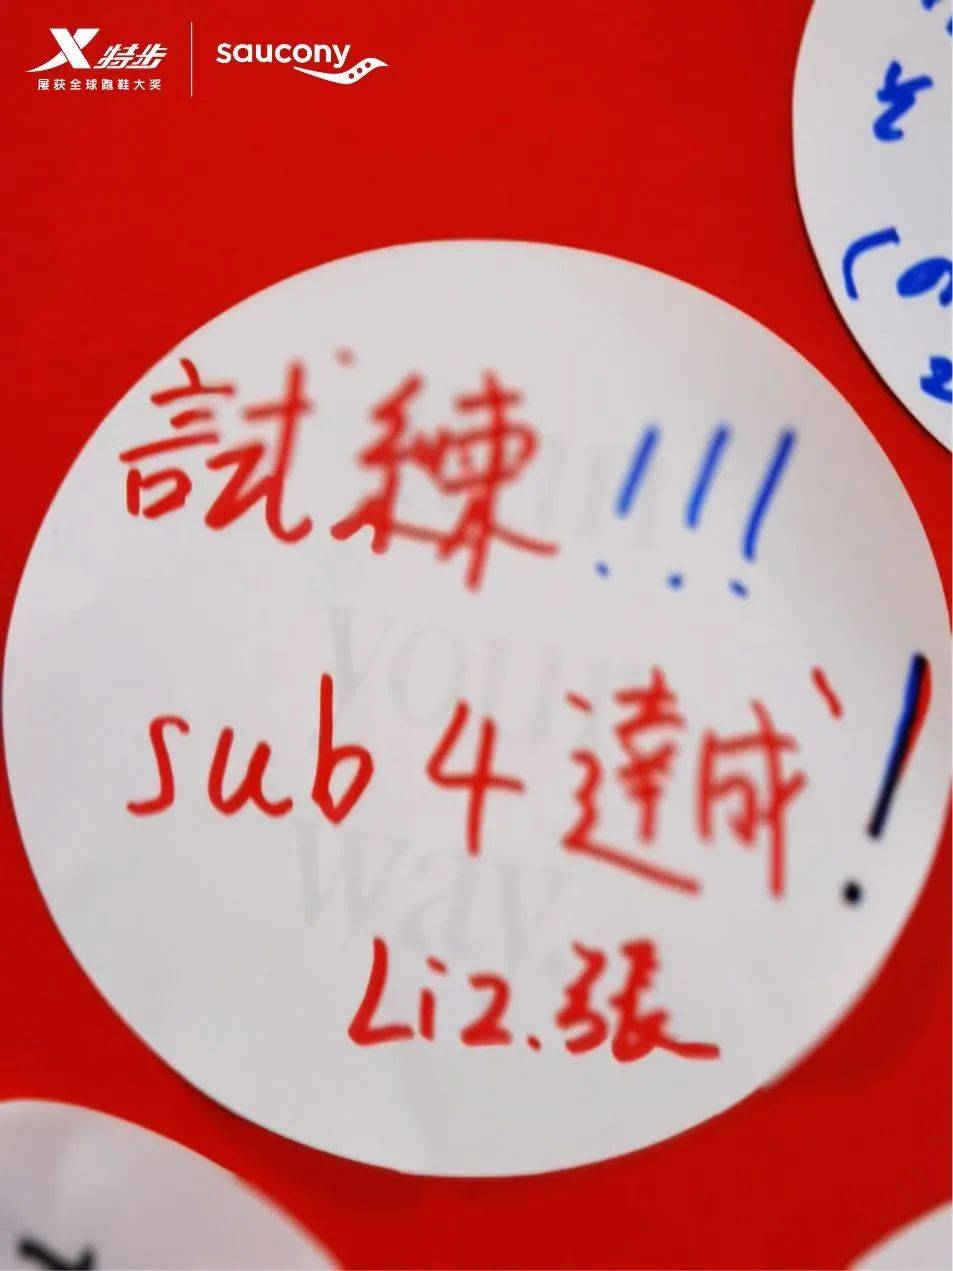 特步
屡获全球跑鞋大奖
saucony
試練!!!
sub 4 達成!
Liz.張
your
way.